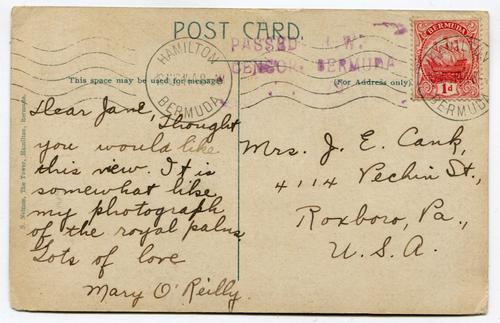 POST CARD.
PASSED
CENSOR, BERMUDA
HAMILTON
BERMUDA
BERMUDA
1d
HAMILTON
BERMUDA
This space may be used for message
(For Address only)
Dear Jane, Thought
you would like
this view. It is
somewhat like
my photograph
of the royal palms.
Lots of love
Mary O'Reilly.
Mrs. J. E. Cank,
4114 Pechin St.,
Roxboro, Pa.,
U.S.A.
S. Nelmes, The Tower, Hamilton, Bermuda.